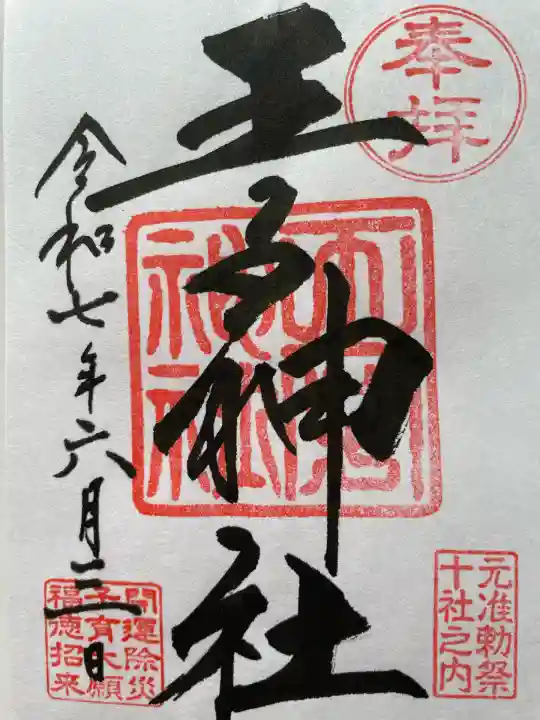 奉拝
王子神社
王子神社
元准勅祭
十社之内
令和七年六月三日
開運除災
子育大願
福徳招来